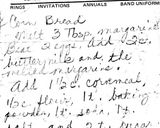 RINGS INVITATIONS ANNUALS BAND UNIFORM
Corn Bread
Melt 3 Tbsp. margarine
Beat 2 eggs, add 1 1/2 c.
buttermilk and the
melted margarine.
Add 1 1/2 c. cornmeal,
1/2 c. flour, 1 t. baking
powder, 1 t. soda, 1 t.
salt and 2 t. sugar